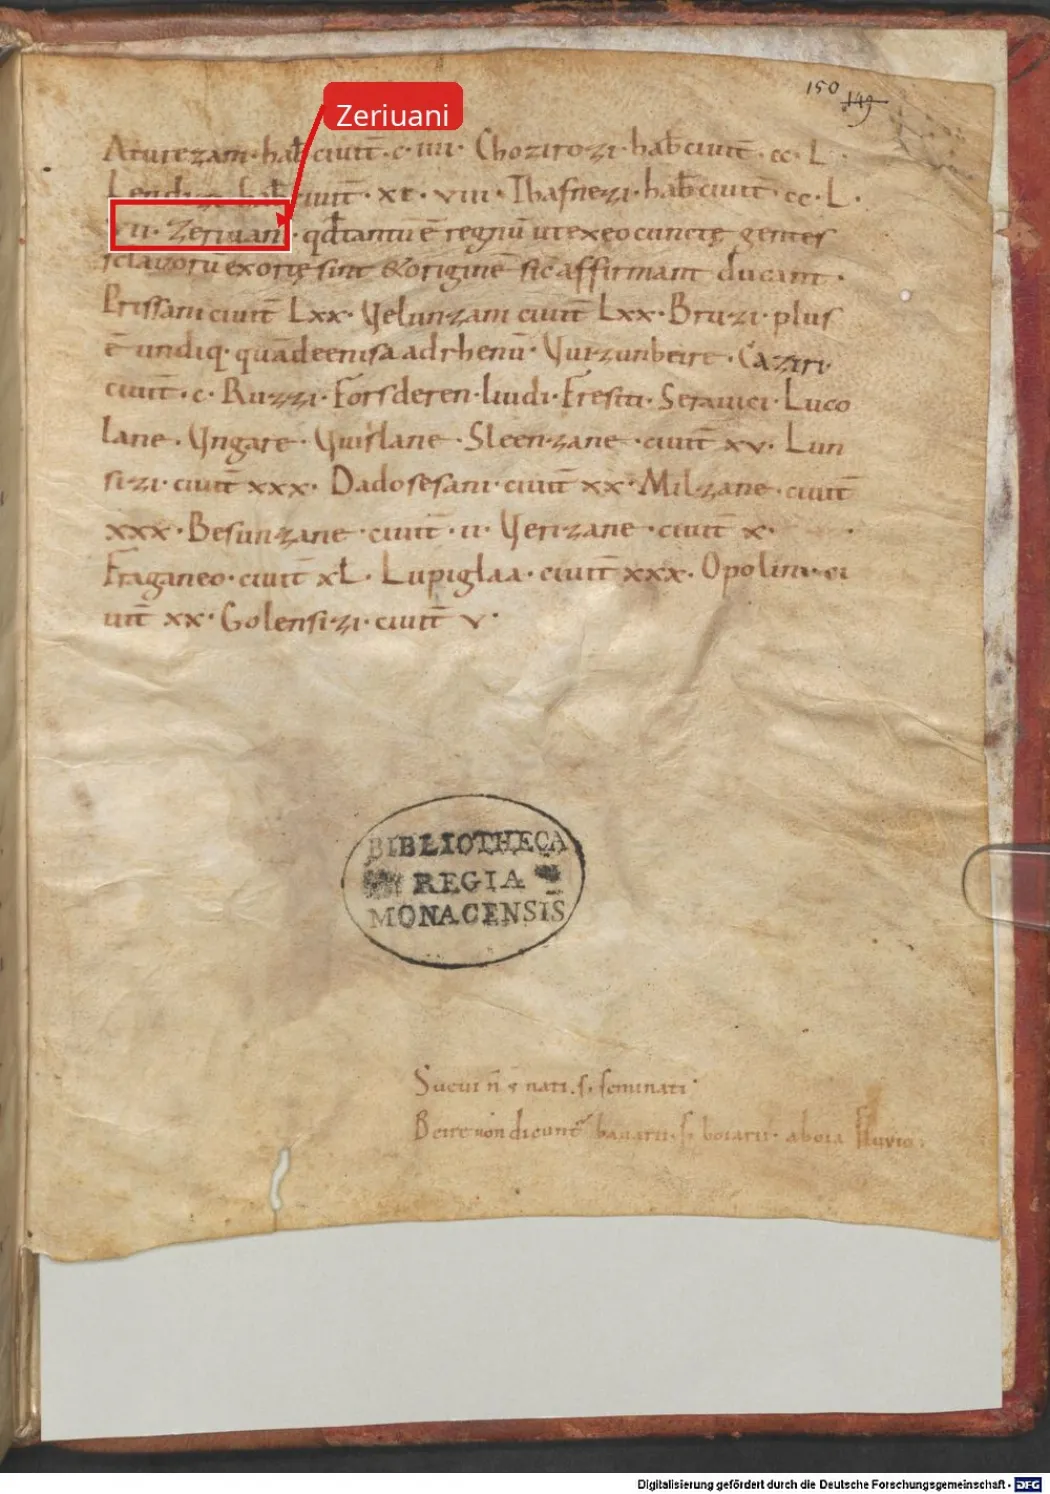 150 149
Zeriuani
Aturezani· hab̄ ciuit̄·c·iiii· Chozirozi· hab̄ ciuit̄·cc·L·
Lendizi hab̄ ciuit̄· xc· viii· Thafnezi· hab̄ ciuit̄ cc·L·
vii· Zeriuani· qđ tantū ē regnū ut ex eo cunctę gentes
sclauorū exortę sint & originē sic affirmant ducant·
Prissani ciuit̄ Lxx· Velunzani ciuit̄ Lxx· Bruzi· plus
ē undiq· quā de enisa ad rhenū· Vuizunbeire· Caziri·
ciuit̄·c· Ruzzi· Forsderen·liudi· Fresiti· Serauici· Luco
lane· Vngare· Vuislane· Sleenzane· ciuit̄ xv· Lun
sizi· ciuit̄ xxx· Dadosesani· ciuit̄ xx· Milzane· ciuit̄
xxx· Besunzane· ciuit̄·ii· Verizane· ciuit̄ x·
Fraganeo· ciuit̄ xL· Lupiglaa· ciuit̄ xxx· Opolini·ci
uit̄ xx· Golensizi· ciuit̄ v·
BIBLIOTHECA
REGIA
MONACENSIS
Sueui n̄ s nati· s; seminati·
Beire non dicunt̄ bauarii· s; boiarii· a boia fluuio·
Digitalisierung gefördert durch die Deutsche Forschungsgemeinschaft - DFG